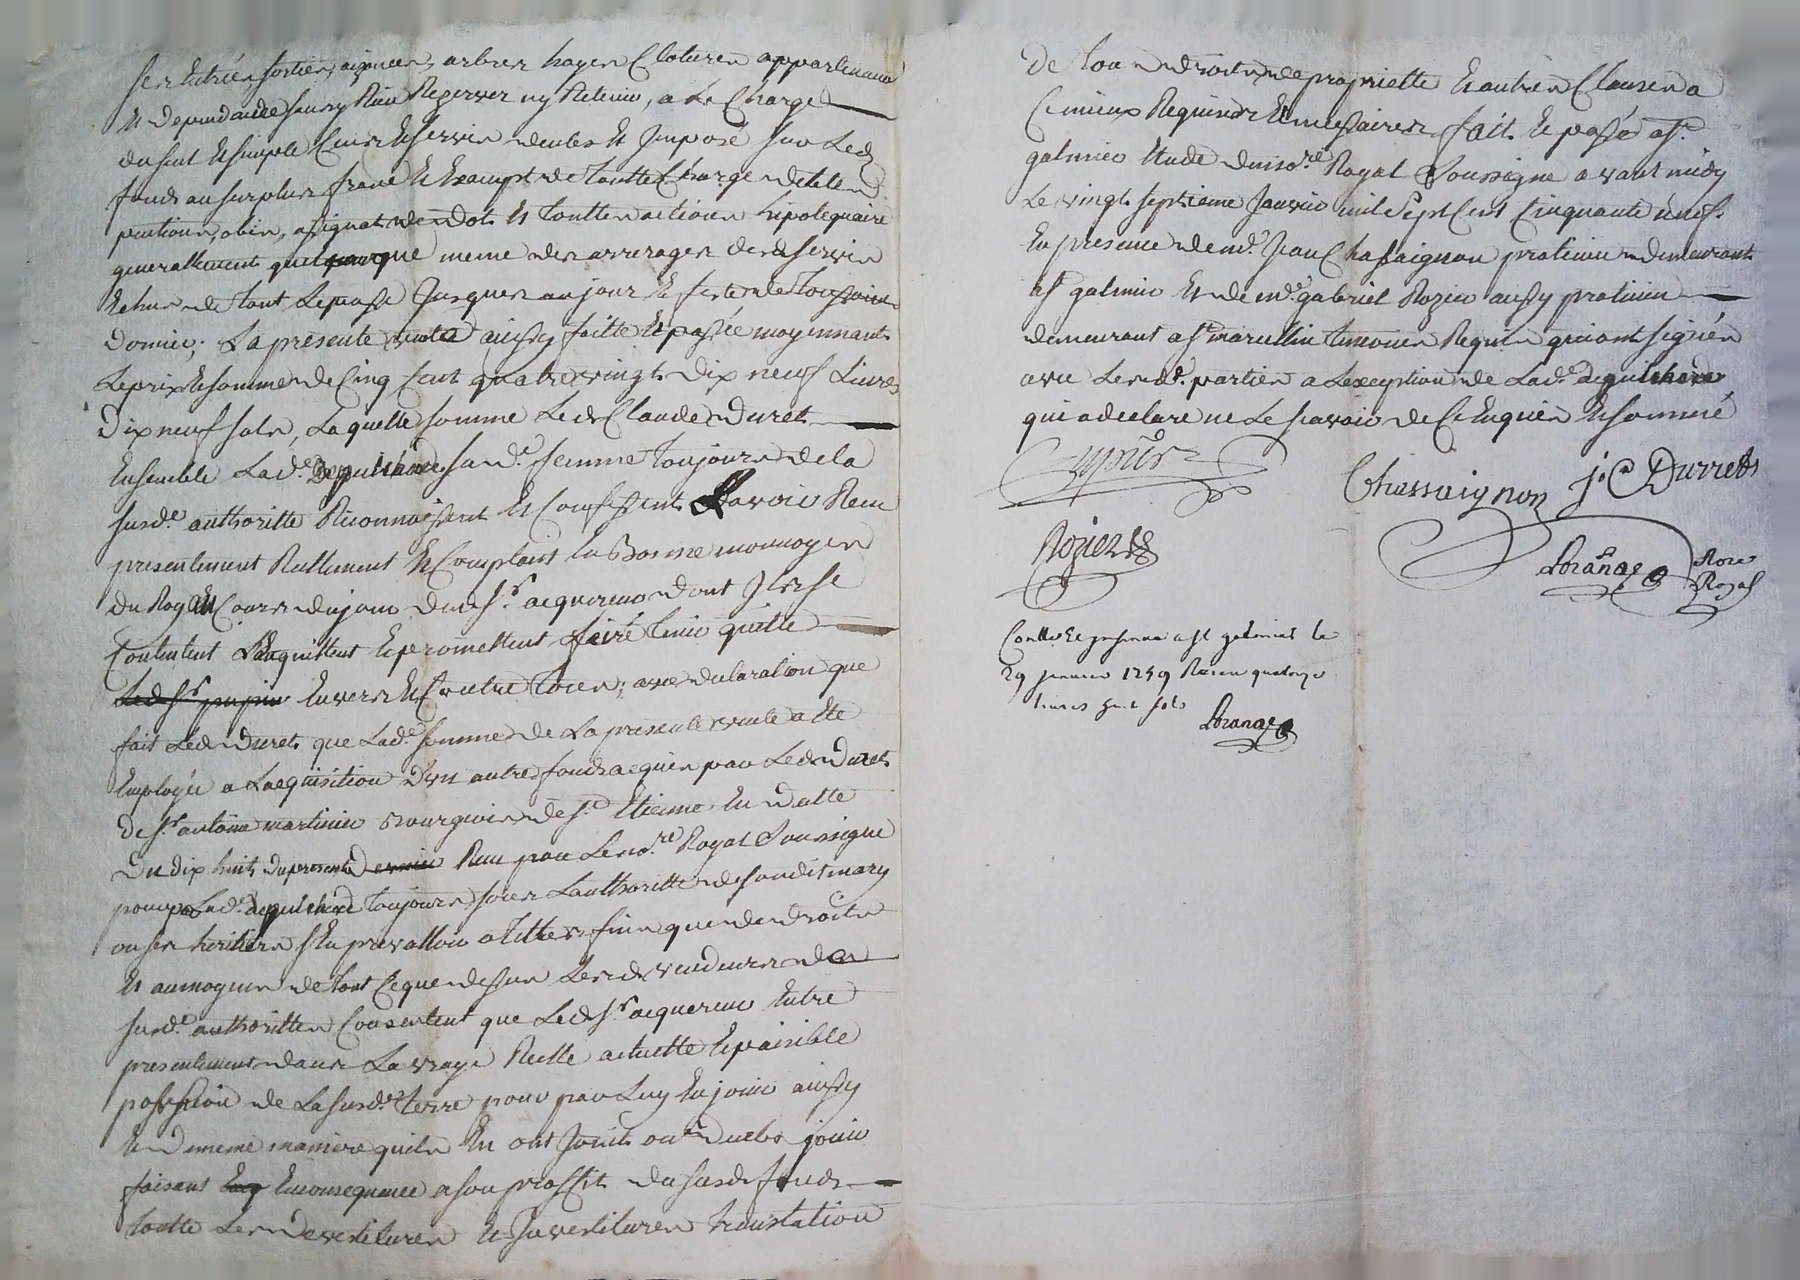 ses Entrées, sorties, aizances, arbres hayes Clotures appartenances
Et dependances sans y Rien Rezerver ny Retenir, a La Charge
du seul Et simple Cens Et servis deubs Et Imposé sur Led.
fonds au surplus franc Et Exempt de toutte Charge debtes
pentions, obis, assignat de dot Et touttes actions hipotequaire
generallement quelquonque meme des arrerages desd. servis
Echus de tout Le passé Jusques au jour Et feste de Toussaint
Dernier; La presente vente aussy faitte Et passée moyennant
Le prix Et somme de Cinq Cent quatre vingt dix neuf Livres
Dix neuf sols, Laquelle somme Led. Claude Duret
Ensemble Lad. sa d. femme toujours de la
susd. authoritte Reconnaissent Et Confessent avoir Receu
presentement Reellement Et Comptant En Bonne monnoye
du Roy Et Cours du jour dud. Sr. acquereur dont Ils se
Contentent L'en quittent Et promettent faire tenir quitte
Led. Sr. Envers Et Contre tous; avec declaration que
fait Led. Duret que Lad. somme de La presente vente a Ete
Employée a L'acquisition d'un autre fonds acquis par Led. Duret
de Sr. antoine martinier Bourgeois de St. Etienne En datte
Du dix huit du present Receu par Le no.re Royal Soussigné
pour Lad. toujours sous L'authoritte de son dit mary
ou ses heritiers s'En prevalloir a telles fins que de droits
Et au moyen de tout Ce que dessus Lesd. vendeurs de
susd. authorittes Consentent que Led. Sr. acquereur Entre
presentement dans La vraye Reelle actuelle Et paisible
possession de La susd. terre pour par Luy En jouir ainsy
Et de meme maniere qu'ils En ont Jouit ou deubs jouir
faisant En consequance a son proffit du susd. fonds
toutte Les devestitures Et Investitures translation
de tous droits de propriette Et autres Clauses a
Ce mieux Requises Et necessaires. fait Et passé a St.
galmier Etude du no.re Royal Soussigné avant midy
Le vingt septieme Janvier mil Sept Cent Cinquante neuf.
En presence de m.e Jean Chassaignon praticien demeurant
a St galmier Et de m.e gabriel Rozier aussy praticien
demeurant a St marcellin temoins Requis qui ont signés
avec Lesd. parties a L'exception de Lad.
qui a declaré ne Le scavoir de Ce Enquise Et sommé
Chassaignon J. C Durret
Rozier
Lorange Nore
Royal
Contlé Et a St galmier Le
29 janvier 1759 Receu quatorze
livres huit sols
Lorange